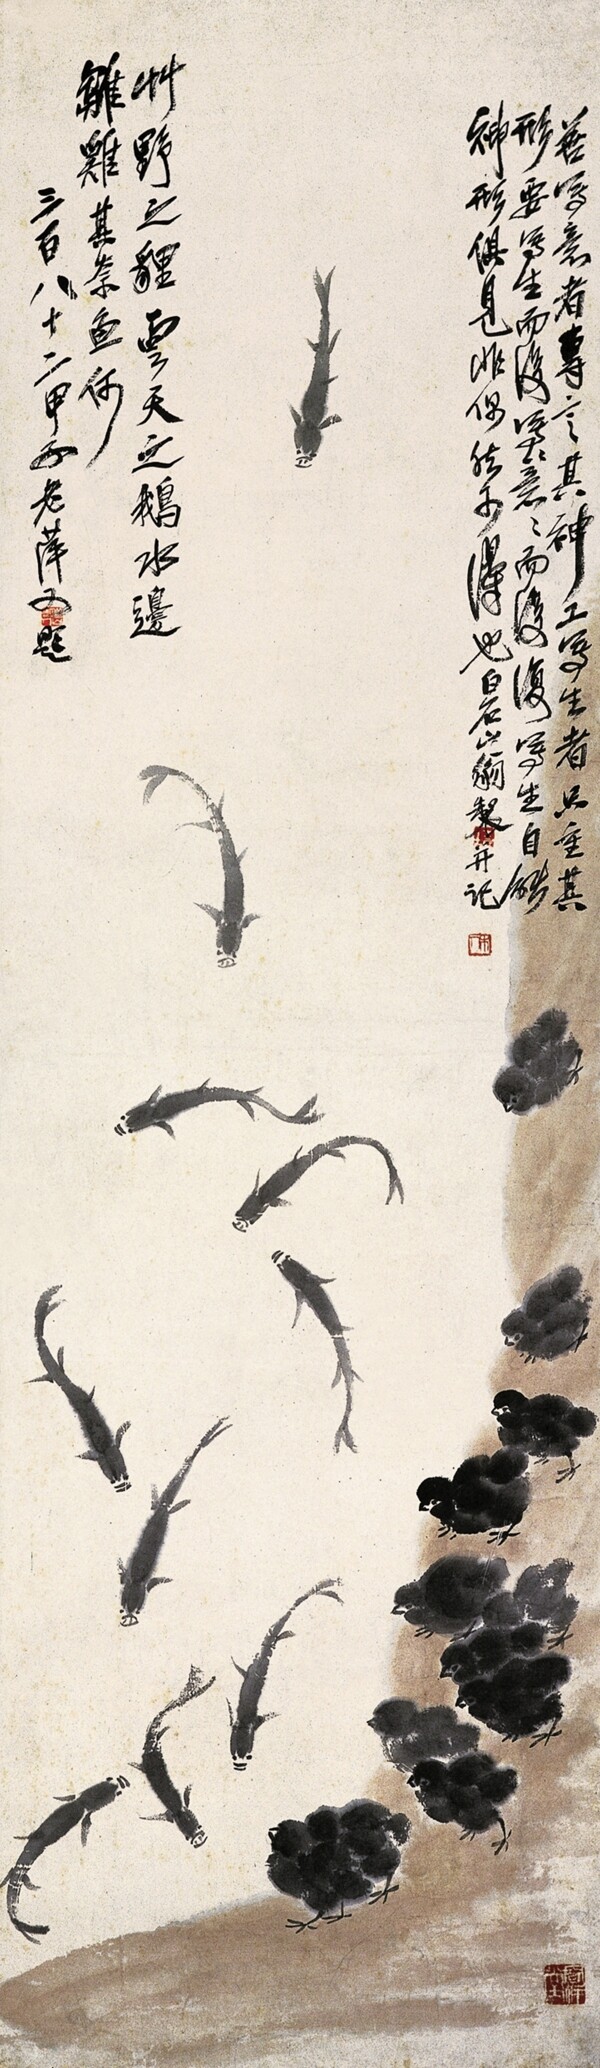 善写意者專言其神工写生者只重其
形要写生而後写意意而後復写生自能
神形俱見非偶然可得也白石山翁製并記
艸野之貍雲天之鵝水邊
雛雞其奈魚何
三百八十二甲子老萍又題